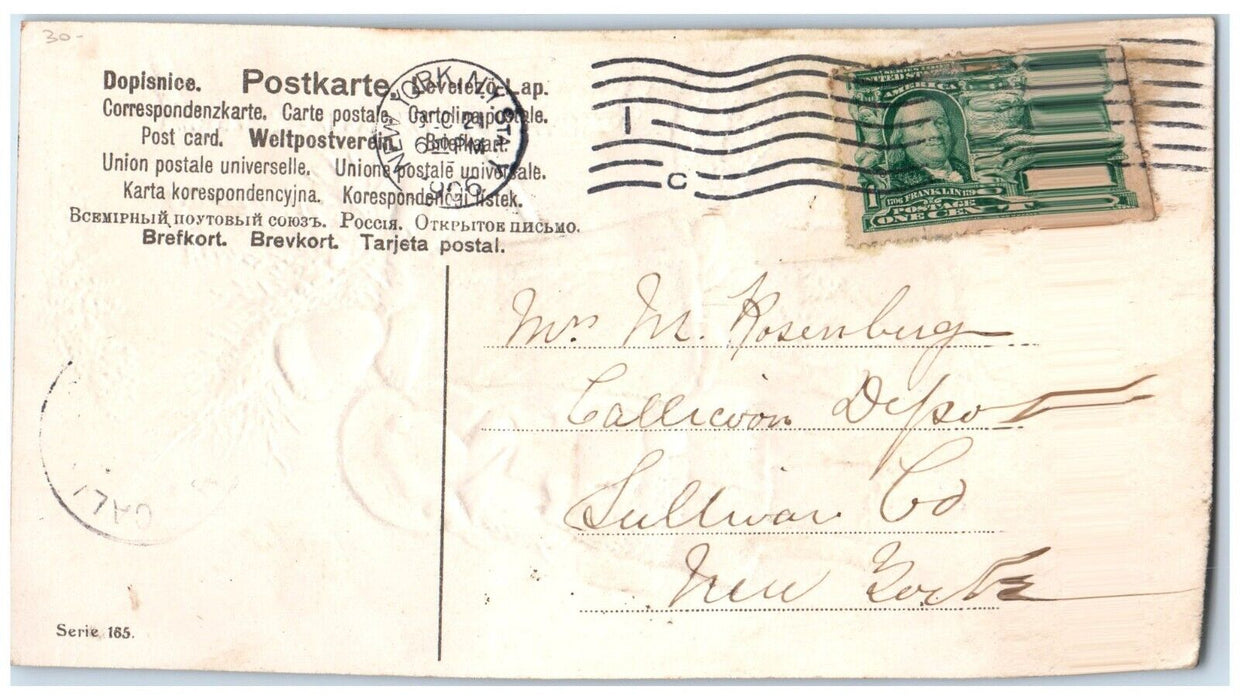 30-
Dopisnice. Postkarte. Levelező-Lap.
Correspondenzkarte. Carte postale. Cartolina postale.
Post card. Weltpostverein. Briefkaart.
Union postale universelle. Unione postale universale.
Karta korespondencyjna. Korespondenční lístek.
Всемірный почтовый союзъ. Россія. Открытое письмо.
Brefkort. Brevkort. Tarjeta postal.
NEW YORK, N.Y. STA. Y
24
6 30 PM
1906
I
C
UNITED STATES
AMERICA
1706 FRANKLIN 1790
POSTAGE
ONE CEN
1
Mrs M. Rosenberg
Callicoon Depo
Sullivan Co
New York
CAL
Serie 165.